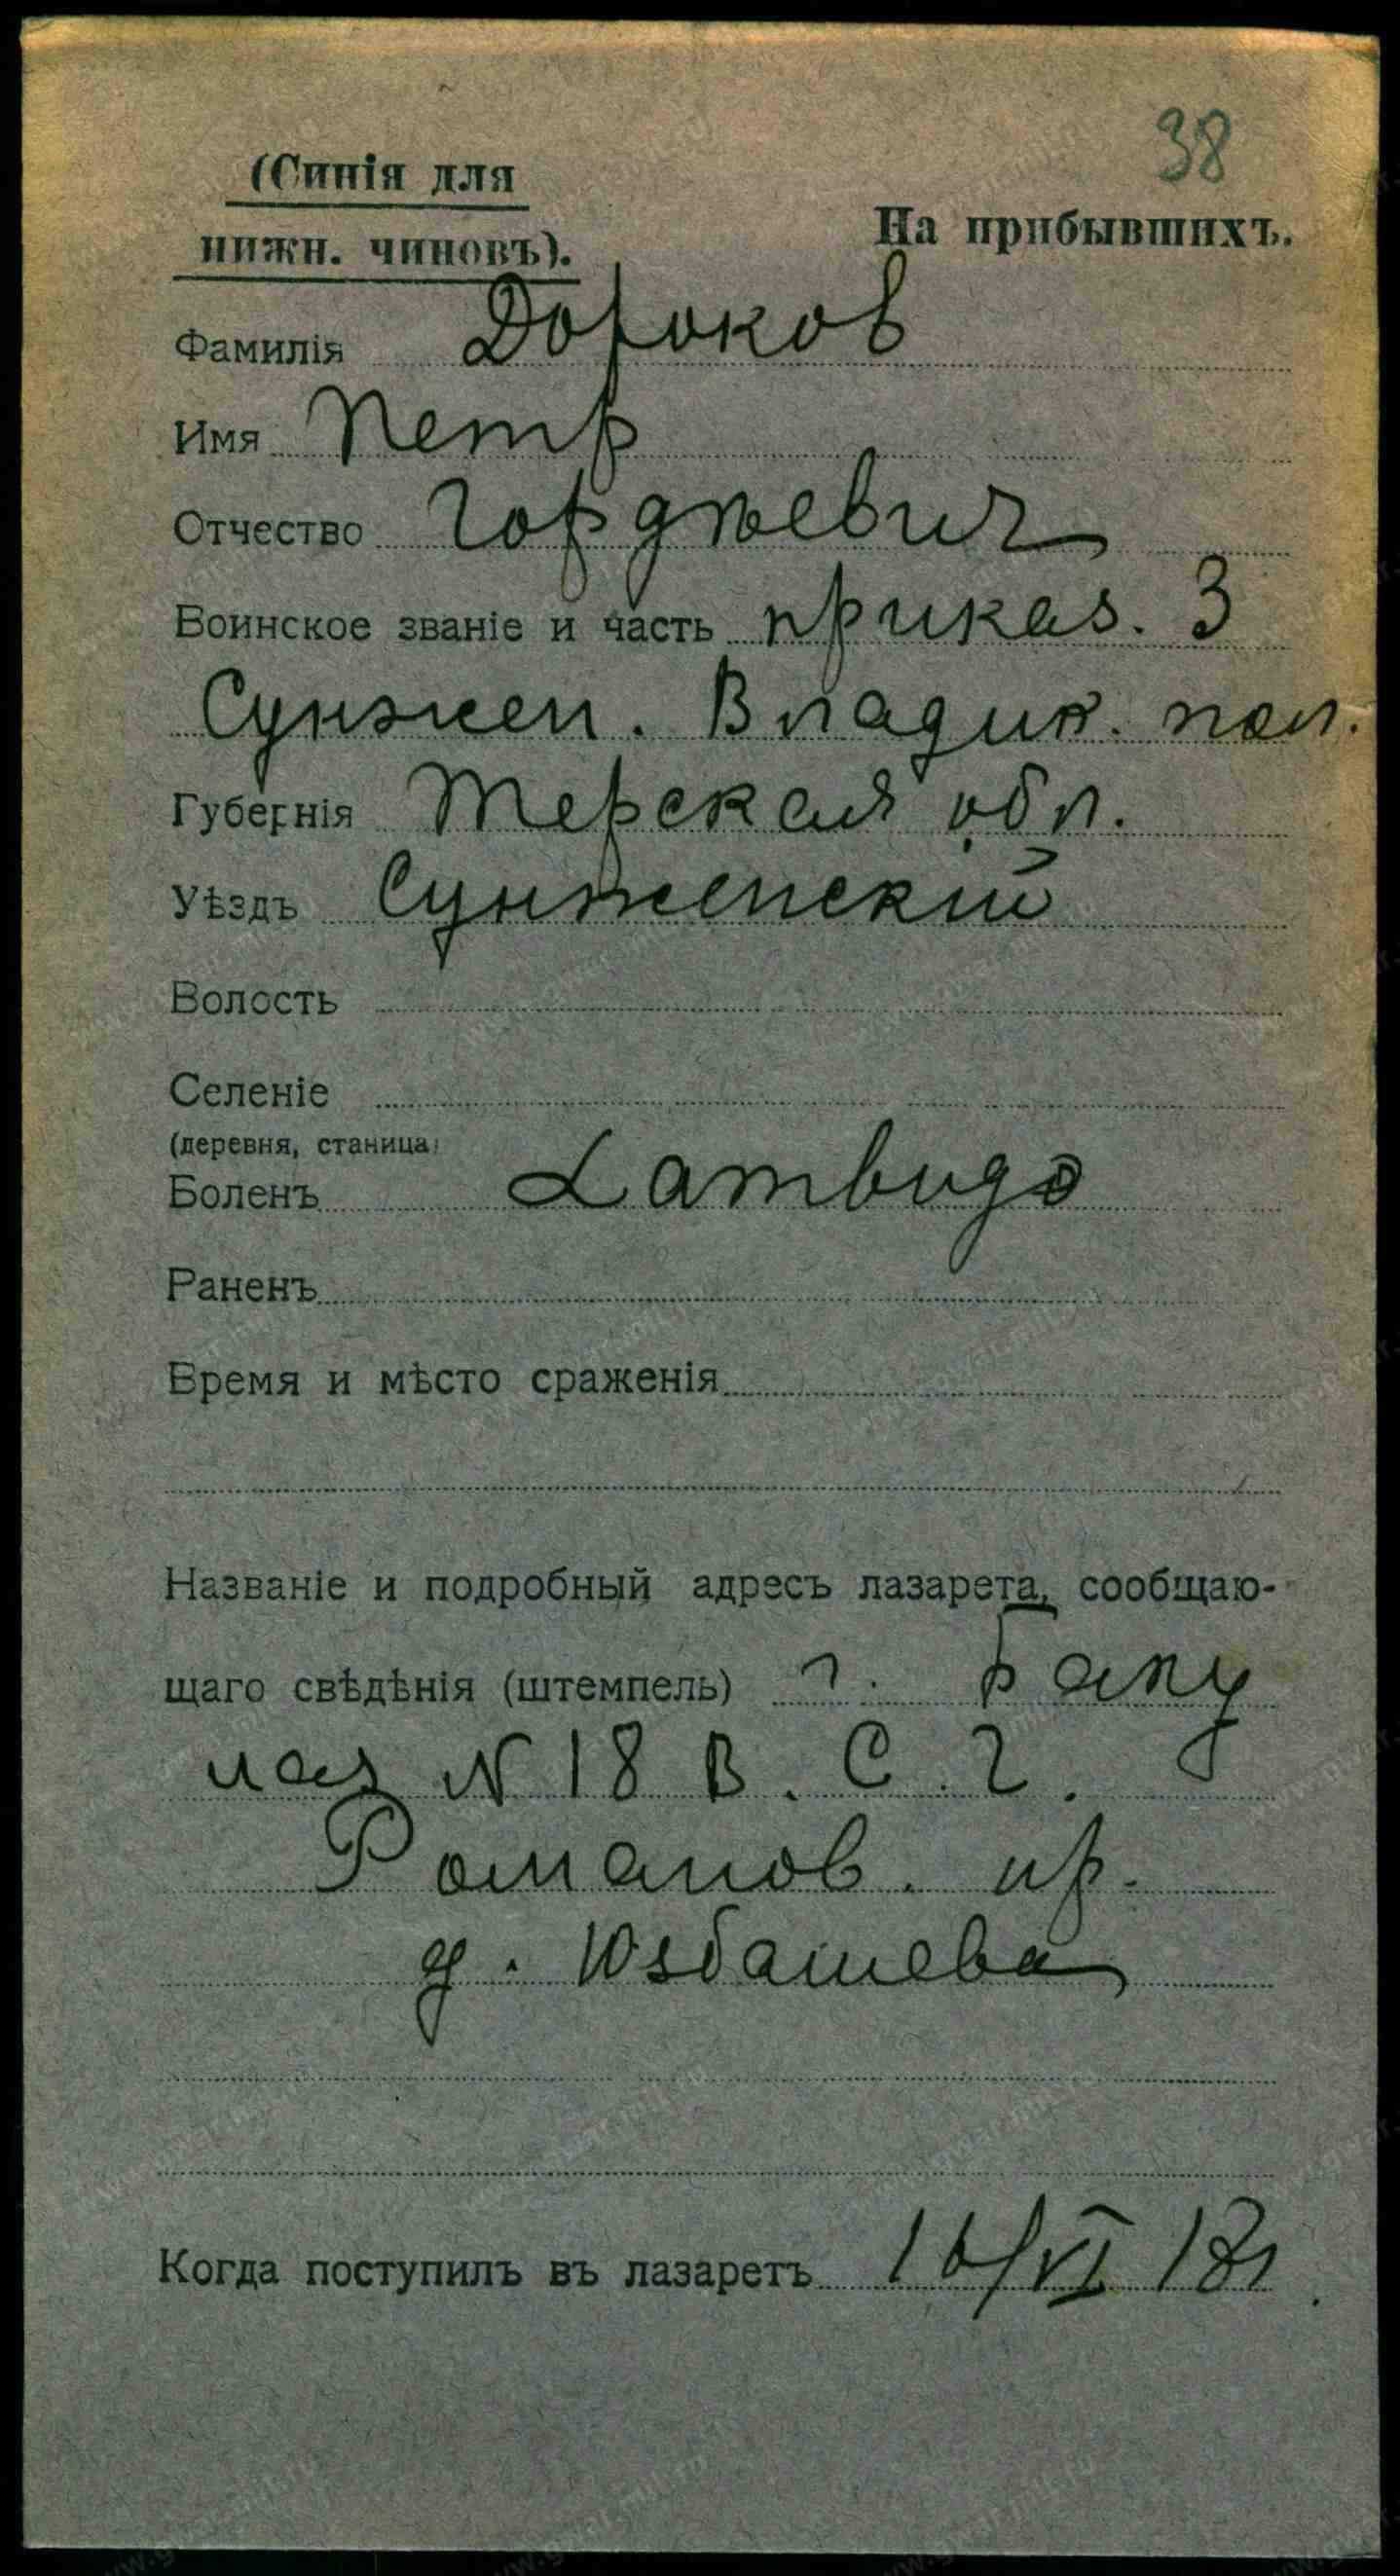 38
(Синія для
нижн. чиновъ).
На прибывшихъ.
Фамилія Дороков
Имя Петр
Отчество Гордѣевич
Воинское званіе и часть приказ. 3
Сунжен. Владик. пол.
Губернія Терская обл.
Уѣздъ Сунженскій
Волость
Селеніе
(деревня, станица)
Боленъ
Раненъ
Время и мѣсто сраженія
Названіе и подробный адресъ лазарета, сообщаю-
щаго свѣдѣнія (штемпель) г. Баку
лаз N 18 В. С. Г.
Романов. пр.
д. Юзбашева
Когда поступилъ въ лазаретъ 16/VI